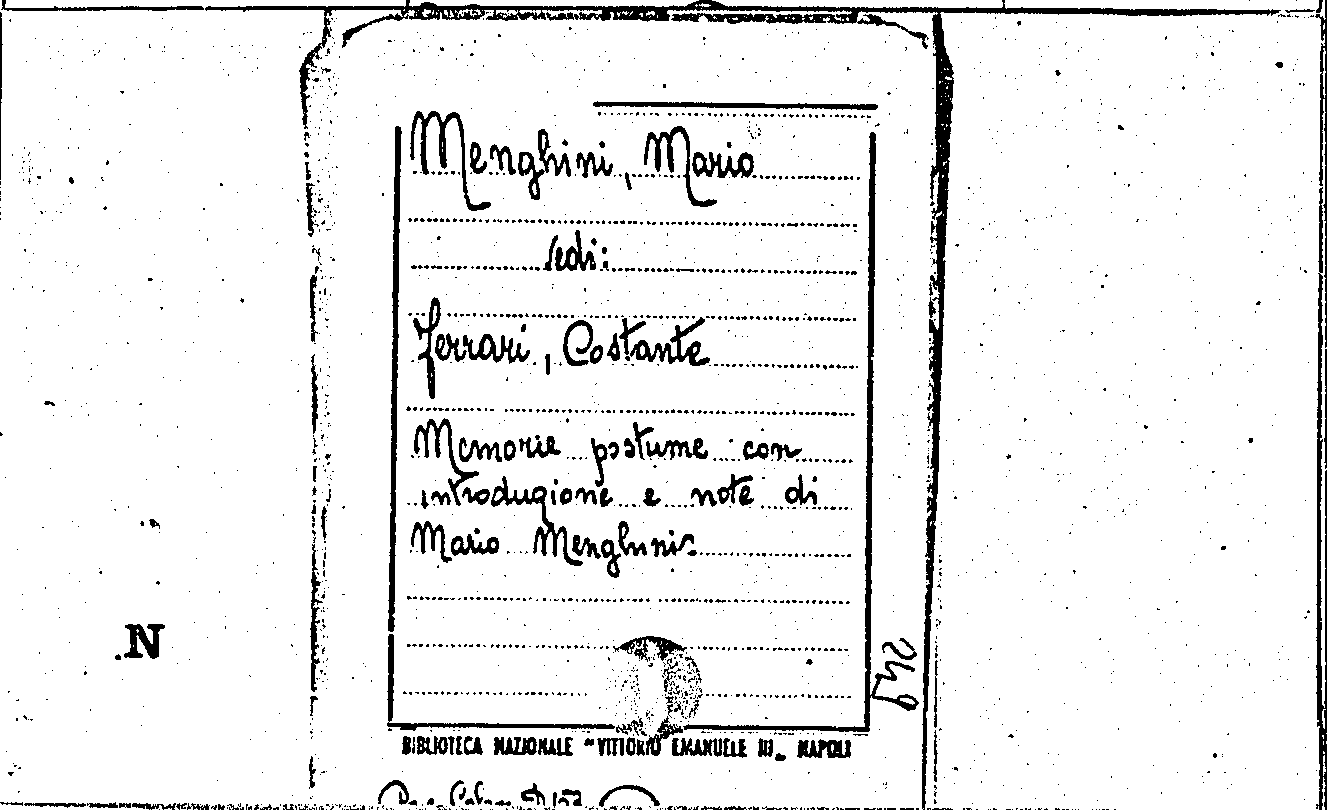 Menghini, Mario
Vedi:
Ferrari, Costante
Memorie postume con
introduzione e note di
Mario Menghini.
N
BIBLIOTECA NAZIONALE "VITTORIO EMANUELE III" NAPOLI